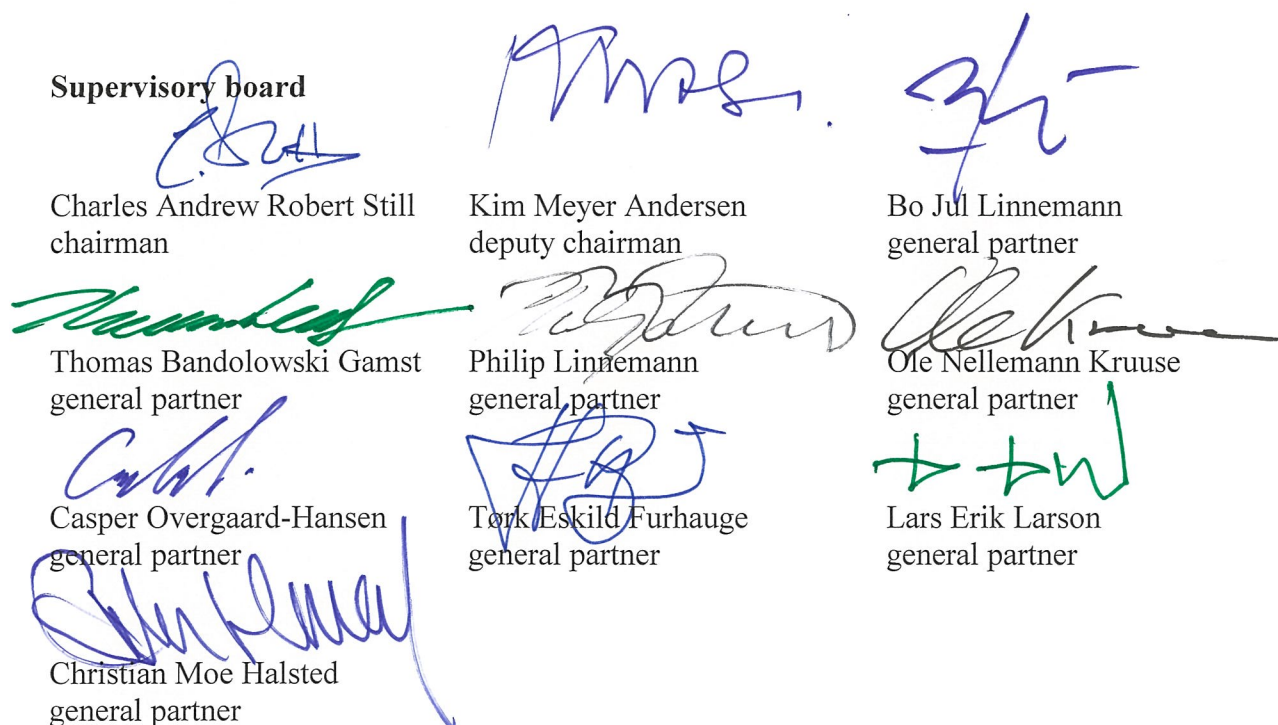 Supervisory board
Charles Andrew Robert Still
chairman
Kim Meyer Andersen
deputy chairman
Bo Jul Linnemann
general partner
Thomas Bandolowski Gamst
general partner
Philip Linnemann
general partner
Ole Nellemann Kruuse
general partner
Casper Overgaard-Hansen
general partner
Tørk Eskild Furhauge
general partner
Lars Erik Larson
general partner
Christian Moe Halsted
general partner